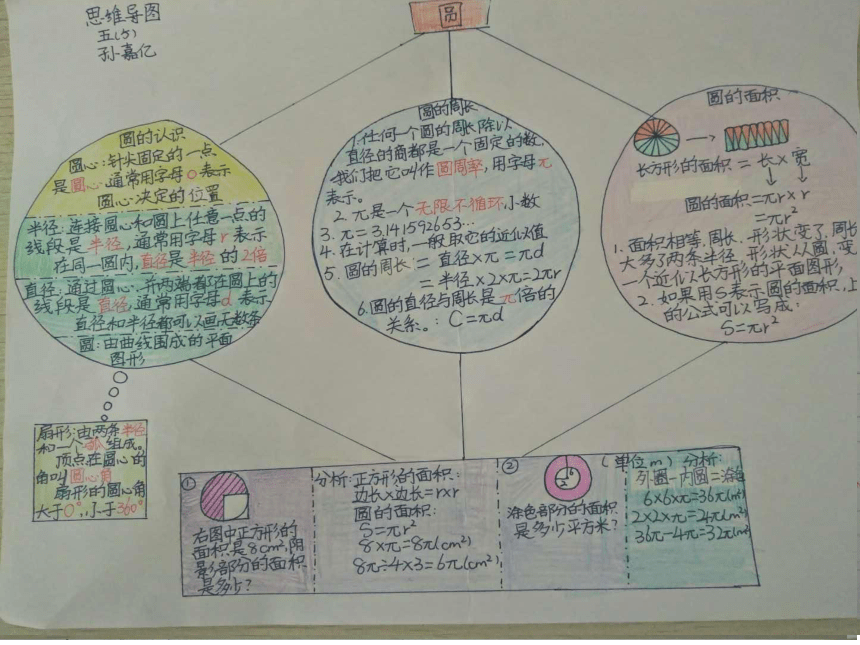 思维导图
五(5)
孙嘉亿
圆
圆的认识
圆心:针尖固定的一点
是圆心.通常用字母O表示
圆心:决定的位置
半径:连接圆心和圆上任意一点的
线段是半径,通常用字母r表示
在同一圆内,直径是半径的2倍
直径:通过圆心、并两端都在圆上的
线段是直径,通常用字母d表示
直径和半径都可以画无数条
圆:由曲线围成的平面
图形
扇形:由两条半径
和一个弧组成。
顶点在圆心的
角叫圆心角
扇形的圆心角
大于0°,小于360°
圆的周长
1.任何一个圆的周长除以
直径的商都是一个固定的数.
我们把它叫作圆周率,用字母π
表示。
2.π是一个无限不循环小数
3.π=3.141592653...
4.在计算时,一般取它的近似值
5.圆的周长=直径×π=πd
=半径×2×π=2πr
6.圆的直径与周长是π倍的
关系。:C=πd
圆的面积
长方形的面积=长×宽
圆的面积=πr×r
=πr²
1.面积相等,周长.形状变了,周长
大多了两条半径,形状从圆,变
一个近似长方形的平面图形
2.如果用S表示圆的面积,上
的公式可以写成:
S=πr²
①
右图中正方形的
面积是8cm²,阴
影部分的面积
是多少?
分析:正方形的面积:
边长×边长=r×r
圆的面积:
S=πr²
8×π=8π(cm²)
8π÷4×3=6π(cm²)
②
6
2
(单位m)
涂色部分的面积
是多少平方米?
分析:
外圆-内圆=涂色
6×6×π=36π(m²)
2×2×π=4π(m²)
36π-4π=32π(m²